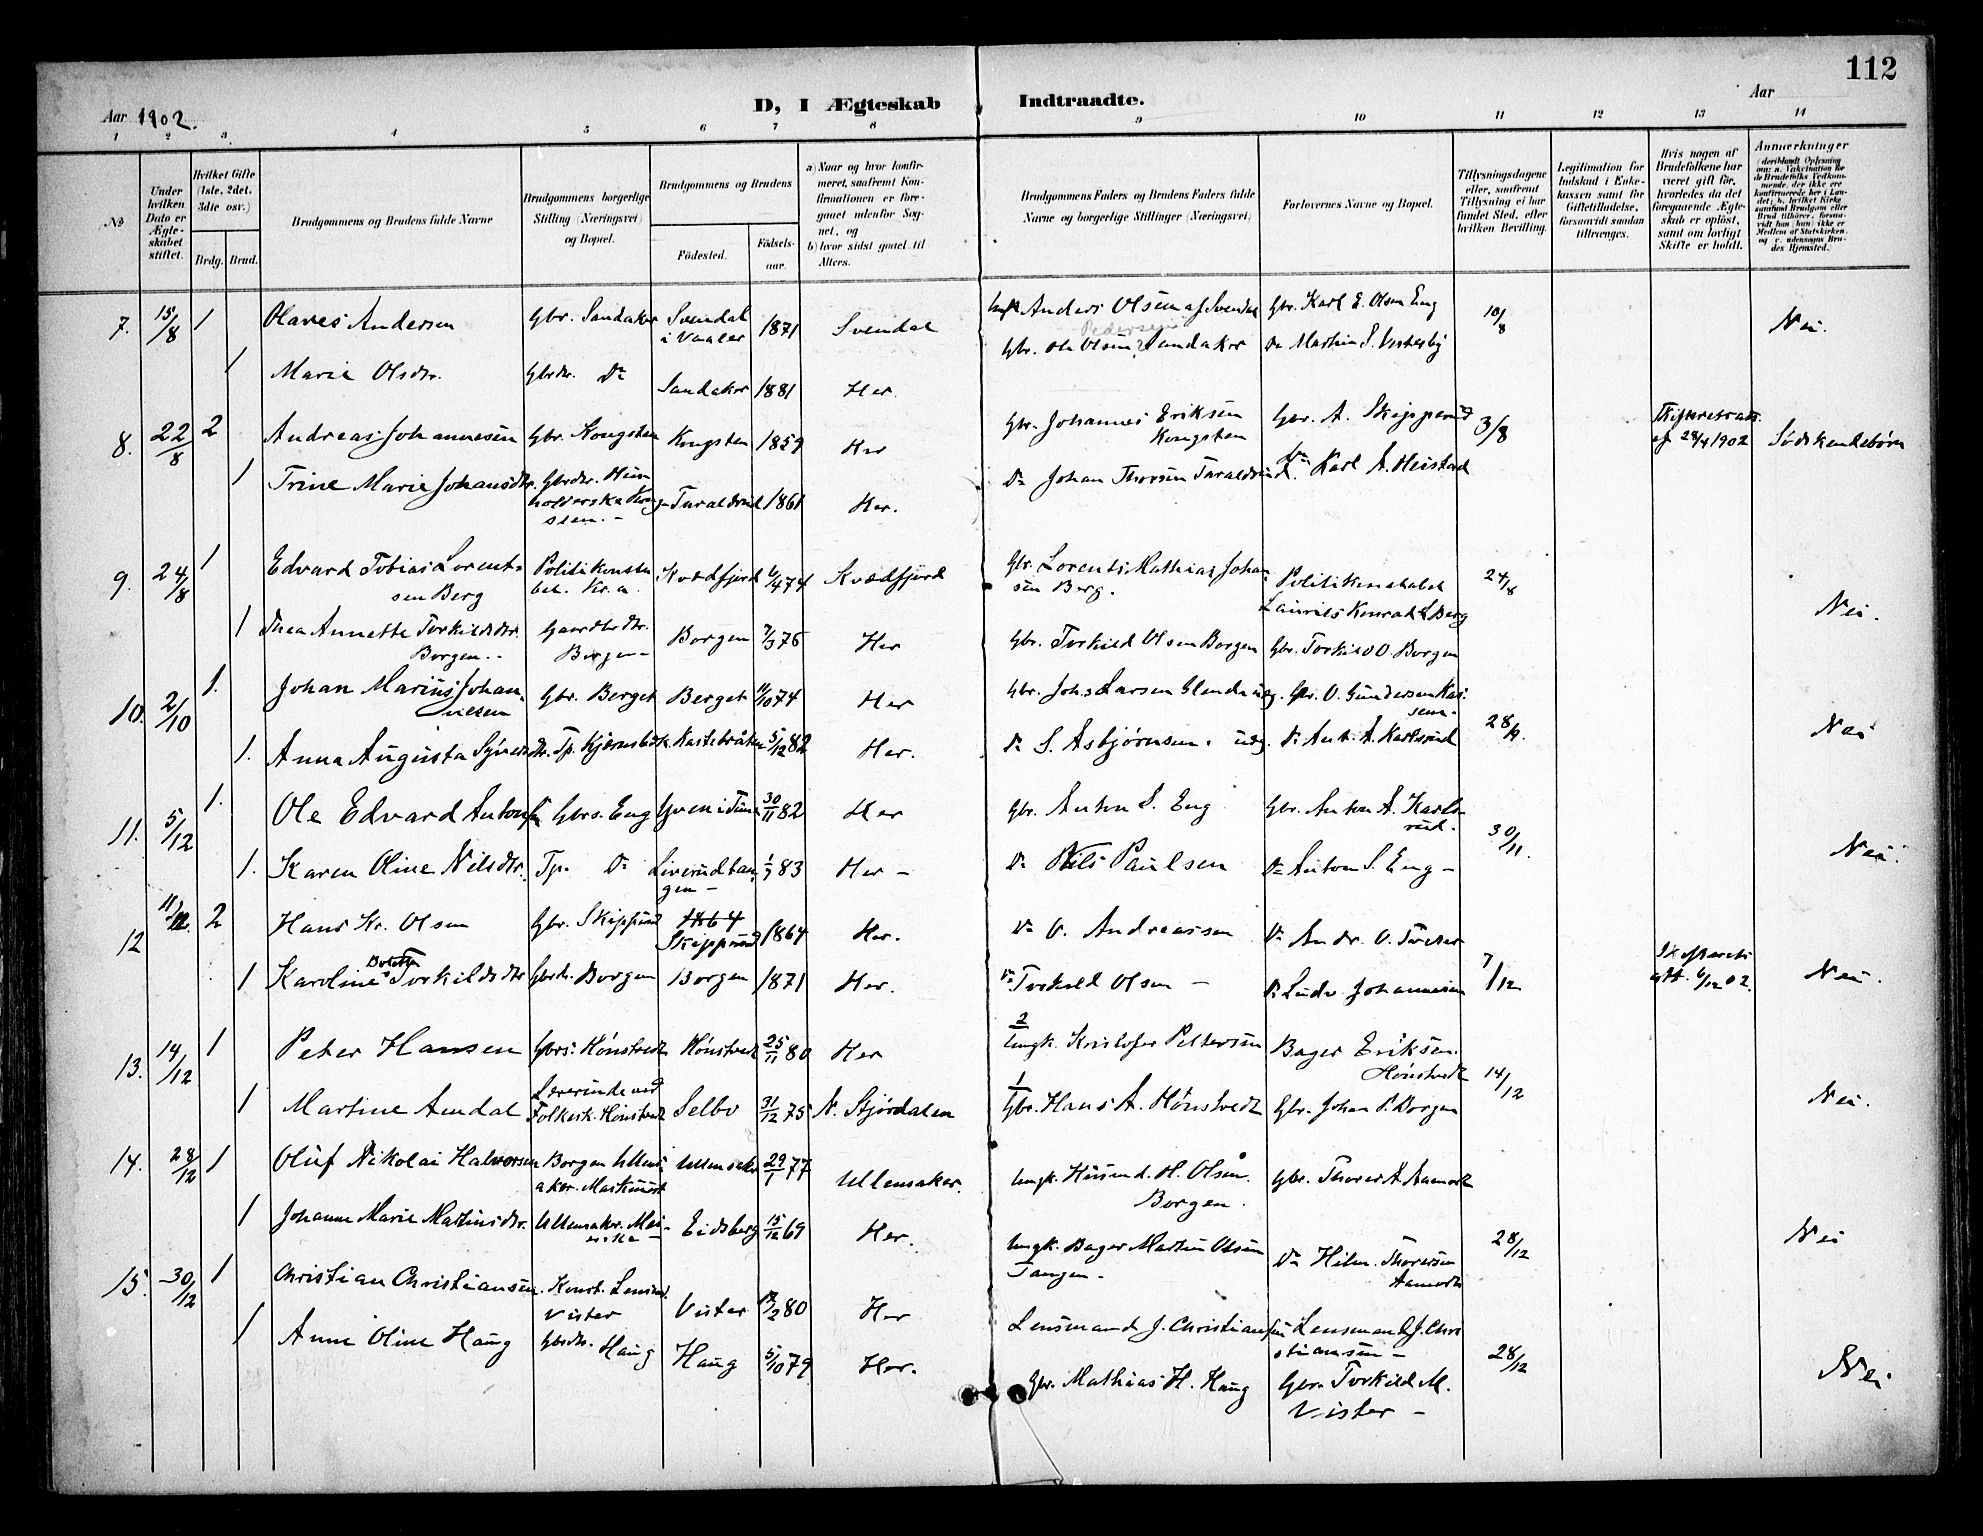 112
D, I Ægteskab Indtraadte.
Aar 1902.
Aar
1 2 3 4 5 6 7 8 9 10 11 12 13 14
No
Under hvilken Dato er Ægteskabet stiftet.
Hvilket Gifte (1ste, 2det, 3die osv.)
Brdg. Brud.
Brudgommens og Brudens fulde Navne
Brudgommens borgerlige Stilling (Næringsvei) og Bopæl.
Brudgommens og Brudens
Fødested.
Fødselsaar.
a) Naar og hvor konfirmeret, saafremt Konfirmationen er foregaaet udenfor Sognet, og
b) hvor sidst gaaet til Alters.
Brudgommens Faders og Brudens Faders fulde Navne og borgerlige Stillinger (Næringsvei)
Forlovernes Navne og Bopæl.
Tillysningsdagene eller, saafremt Tillysning ei har fundet Sted, efter hvilken Bevilling.
Legitimation for Indskud i Enkekassen samt for Giftetilladelse, forsaavidt saadan tiltrænges.
Hvis nogen af Brudefolkene har været gift før, hvorledes da det foregaaende Ægteskab er opløst, samt om lovligt Skifte er holdt.
Anmærkninger
7. 13/8 1 Olaves Andersen Gbr. Sandaker Svendal i Vaaler 1871 Svendal Anders Olsen af Svendal Gbr. Karl E. Olsen Eng 10/8 Nei.
Pedersen
1 Marie Olsdtr. Gbrdtr. Do Sandaker 1881 Her. Gbr. Ole Olsen Sandaker Do Martin S. Vestby
8. 22/8 2 Andreas Johannesen Gbr. Kongsten Kongsten 1859 Her Gbr. Johannes Eriksen Kongsten Gbr. A. Skipperud 3/8 Skifteretsatt. af 28/4 1902 Sødskendebørn
1 Trine Marie Johansdtr. Gbrdtr. Husholderske Kongsten. Taraldrud 1861 Her. Do Johan Thorsen Taraldrud Do Karl A. Heistad
9. 24/8 1 Edvard Tobias Lorentsen Berg Politikonstabel. Kr.a. Kvædfjord 6/4 74 Kvædfjord Gbr. Lorents Mathias Johansen Berg. Politikonstabel Laurits Konrad L. Berg 24/8 Nei.
1 Thea Annette Torkildsdtr. Borgen. Gaardbrdtr. Borgen 7/3 76 Her Gbr. Torkild Olsen Borgen Gbr. Torkild O. Borgen
10. 2/10 1. Johan Marius Johannesen Gbr. Berget Berget 11/10 74 Her Gbr. Johs Larsen Glende Gbr. O. Gundersen 28/9. Nei
1. Anna Augusta Tp. Kastebråten 5/12 82 Her. Do S. Asbjørnsen. Do Ant. A. Karlsrud
11. 5/12 1. Ole Edvard Antons. Gbrs. Eng Gven i Tune 30/11 82 Her Gbr. Anton S. Eng Gbr. Anton A. Karlsrud. 30/11. Nei.
1. Karen Oline Nilsdtr. Tp. Do Liverudtangen 1/7 83 Her Do Nils Paulsen Do Anton S. Eng
12 11/12. 2 Hans Kr. Olsen Gbr. Skipperud 1864 Skipperud 1864 Her. Do O. Andreassen Do Andr. O. 7/12 Skifteretsatt. 6/12 02. Nei.
1 Karoline Bolette Torkildsdtr Gbrdr. Borgen Borgen 1871 Her. Do Torkild Olsen Do Ludv. Johannesen
13. 14/12 1 Peter Hansen Gbrs. Hønstvedt Hønstvedt 25/11 80 Her 2 Ungk. Kristofer Pettersen Bager Eriksen. Hønstvedt 14/12 Nei.
1 Martine Amdal Lærerinde ved Folkesk. Hønstvedt Selbo 31/12 75 N. Stjørdalen 1 Gbr. Hans A. Hønstvedt Gbr. Johan P. Borgen
14. 28/12 1 Oluf Nikolai Halvorsen Borgen Ullensaker. Ullensaker 29/1 77 Ullensaker. Ungk. Husmd. H. Olsen. Borgen. Gbr. Thorer A. Aamodt 28/12 Nei
1 Johanne Marie Martinsdtr. Ullensaker. Meierske Eidsberg 15/12 69 Her. Ungk. Bager Martin Olsen Tangen. Do Hilm. Thoresen Aamodt
15. 30/12 1 Christian Christiansen Konst. Lensmd. Vister Vister 18/2 80 Her Lensmand J. Christiansen Lensmand J. Christiansen 28/12 Nei
1 Anne Oline Haug Gbrdtr. Haug Haug 5/10 79 Her. Gbr. Mathias H. Haug Gbr. Torkild M. Vister